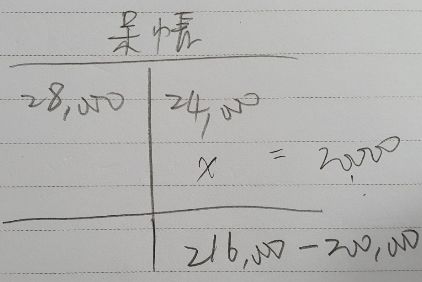 呆帳
28,000 24,000
x = 20,000
216,000 - 200,000